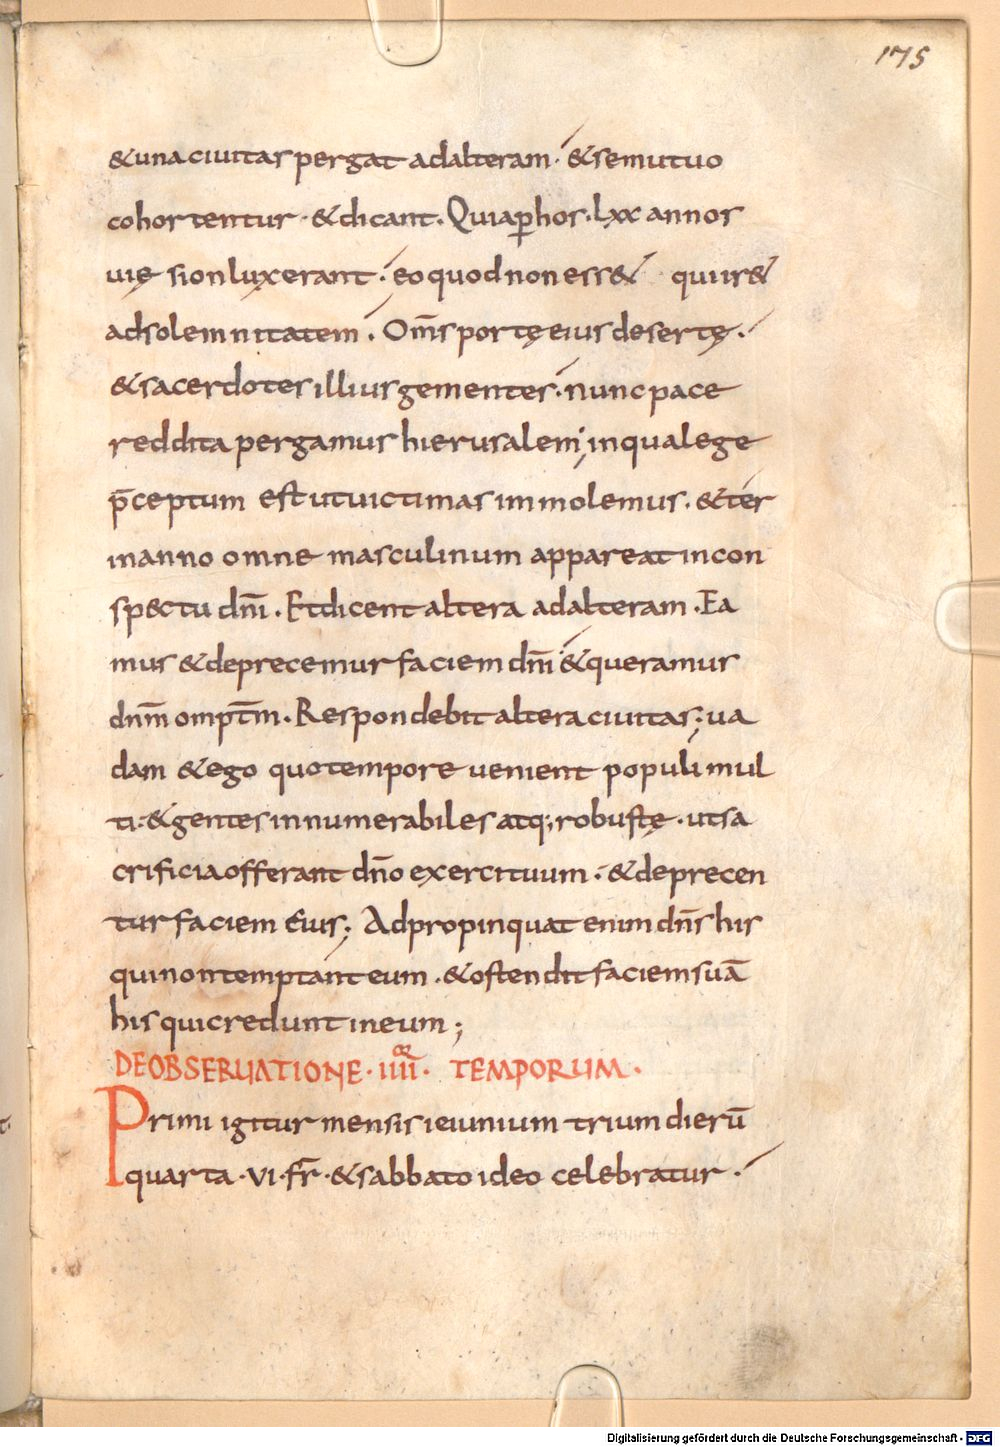 175
&una ciuitas pergat adalteram· &semutuo
cohortentur· &dicant. Quiap̲hos·lxx annos
uię sionluxerant· eoquodnoness& quiir&
adsolemnitatem. Om̅s portę eius desertę.
&sacerdotes illius gementes· nuncpace
reddita pergamus hierusalem; inqualege
p̅ceptum est utuictimas immolemus. &ter
inanno omne masculinum appareat incon
sp&ctu dn̅i. Etdicent altera adalteram. Ea
mus &deprecemur faciem dn̅i &queramus
dnm̅ ompt̅m. Respondebit altera ciuitas; ua
dam &ego quotempore uenient populi mul
ti· &gentes innumerabiles atq; robustę· utsa
crificia offerant dn̅o exercituum· &deprecen
tur faciem eius; Adpropinquat enim dn̅s his
quinontemptant eum. &ostendit faciemsuā
his quicredunt ineum;
DEOBSERUATIONE· IIII or· TEMPORUM.
Primi igitur mensis ieiunium trium dierū
quarta· VI· fr̅· &sabbato ideo celebratur.
Digitalisierung gefördert durch die Deutsche Forschungsgemeinschaft - DFG